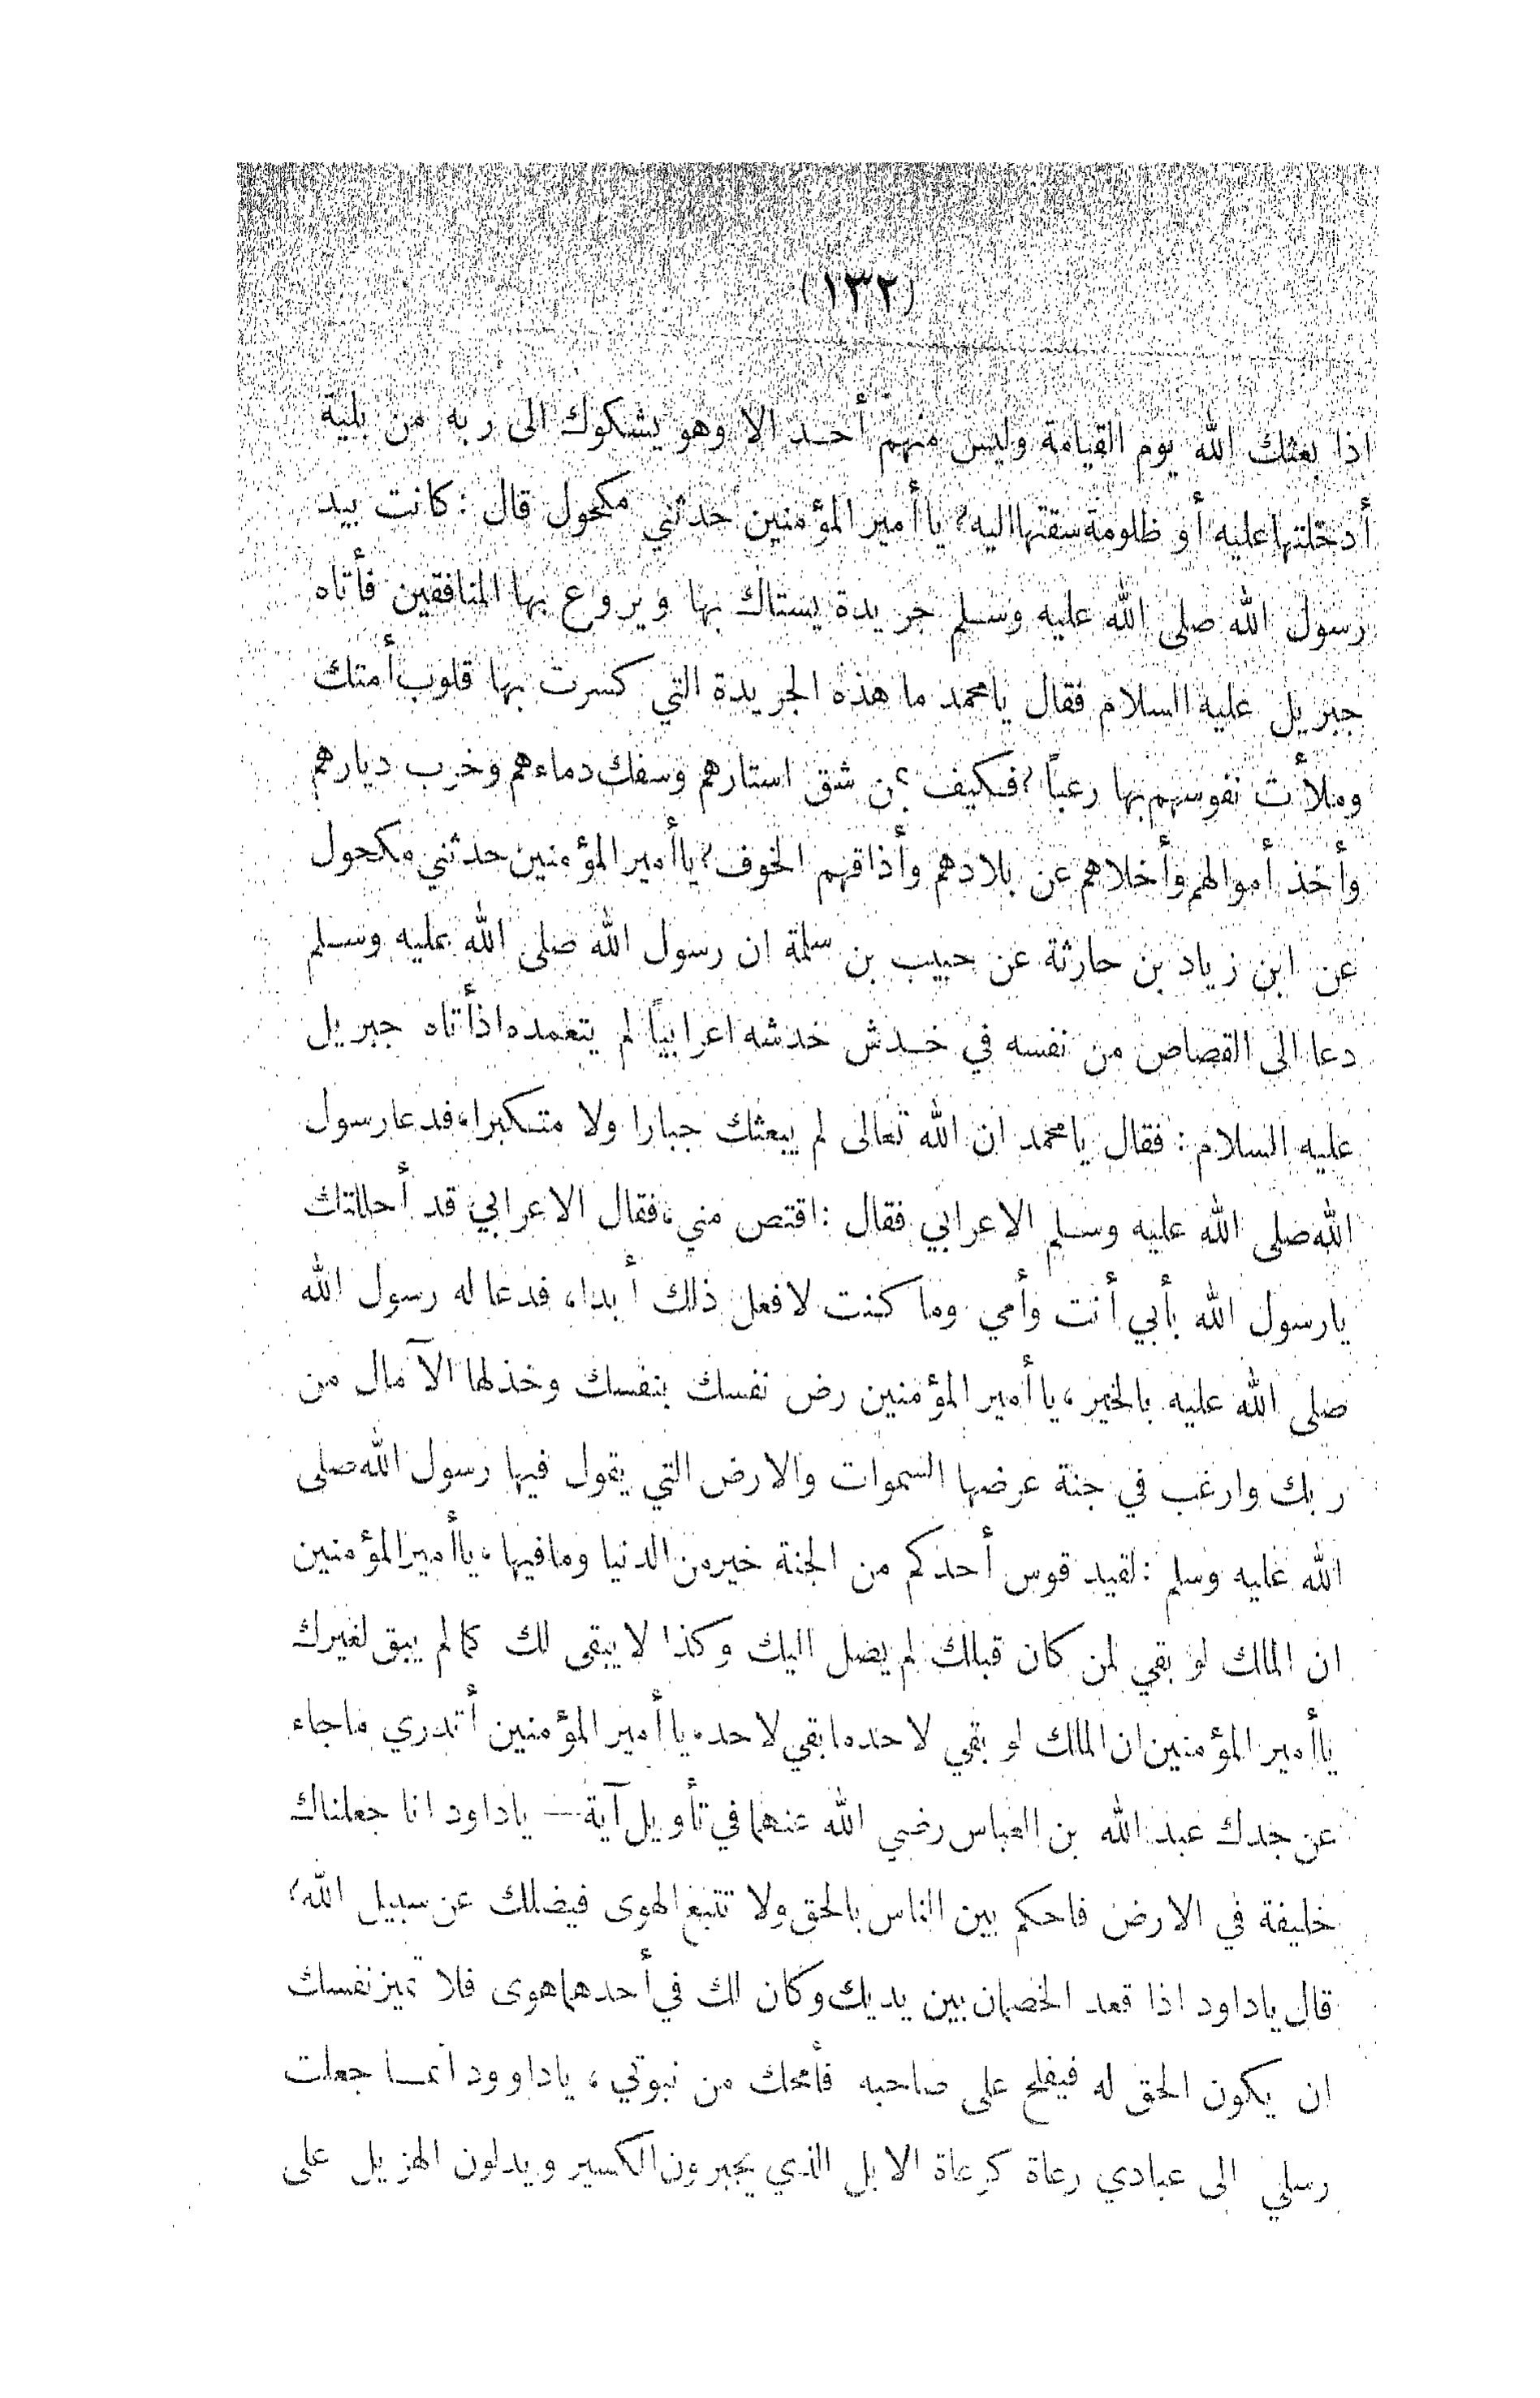 (١٣٢)
اذا بعثك الله يوم القيامة وليس منهم أحد الا وهو يشكوك الى ربه من بلية
أدخلتها عليه أو ظلومة سقتها اليه؟ يا أمير المؤمنين حدثني مكحول قال : كانت بيد
رسول الله صلى الله عليه وسلم جريدة يستاك بها ويروع بها المنافقين فأتاه
جبريل عليه السلام فقال يا محمد ما هذه الجريدة التي كسرت بها قلوب أمتك
وملأت نفوسهم بها رعباً؟ فكيف بمن شق استارهم وسفك دماءهم وخرب ديارهم
وأخذ أموالهم وأخلاهم عن بلادهم وأذاقهم الخوف؟ يا أمير المؤمنين حدثني مكحول
عن ابن زياد بن حارثة عن حبيب بن سلمة ان رسول الله صلى الله عليه وسلم
دعا الى القصاص من نفسه في خدش خدشه اعرابياً لم يتعمده اذ أتاه جبريل
عليه السلام : فقال يا محمد ان الله تعالى لم يبعثك جبارا ولا متكبرا، فدعا رسول
الله صلى الله عليه وسلم الاعرابي فقال : اقتص مني، فقال الاعرابي قد أحللتك
يارسول الله بأبي أنت وأمي وما كنت لافعل ذلك أبدا، فدعا له رسول الله
صلى الله عليه بالخير، يا أمير المؤمنين رض نفسك بنفسك وخذلها الآمال من
ربك وارغب في جنة عرضها السموات والارض التي يقول فيها رسول الله صلى
الله عليه وسلم : لقيد قوس أحدكم من الجنة خير من الدنيا وما فيها، يا أمير المؤمنين
ان الملك لو بقي لمن كان قبلك لم يصل اليك وكذا لا يبقى لك كما لم يبق لغيرك
يا أمير المؤمنين ان الملك لو بقي لاحد ما بقي لاحد. يا أمير المؤمنين أتدري ما جاء
عن جدك عبد الله بن العباس رضي الله عنهما في تأويل آية — ياداود انا جعلناك
خليفة في الارض فاحكم بين الناس بالحق ولا تتبع الهوى فيضلك عن سبيل الله؟
قال ياداود اذا قعد الخصمان بين يديك وكان لك في أحدهما هوى فلا تميز نفسك
ان يكون الحق له فيفلح على صاحبه فأمحك من نبوتي، ياداوود انما جعلت
رسلي الى عبادي رعاة كرعاة الابل الذي يجبرون الكسير ويدلون الهزيل على